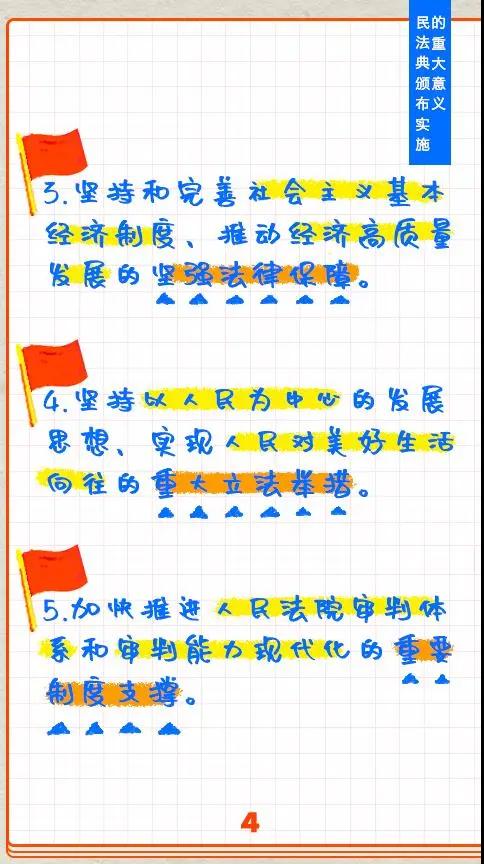 民法典颁布实施
的重大意义
3.坚持和完善社会主义基本
经济制度、推动经济高质量
发展的坚强法律保障。
4.坚持以人民为中心的发展
思想、实现人民对美好生活
向往的重大立法举措。
5.加快推进人民法院审判体
系和审判能力现代化的重要
制度支撑。
4